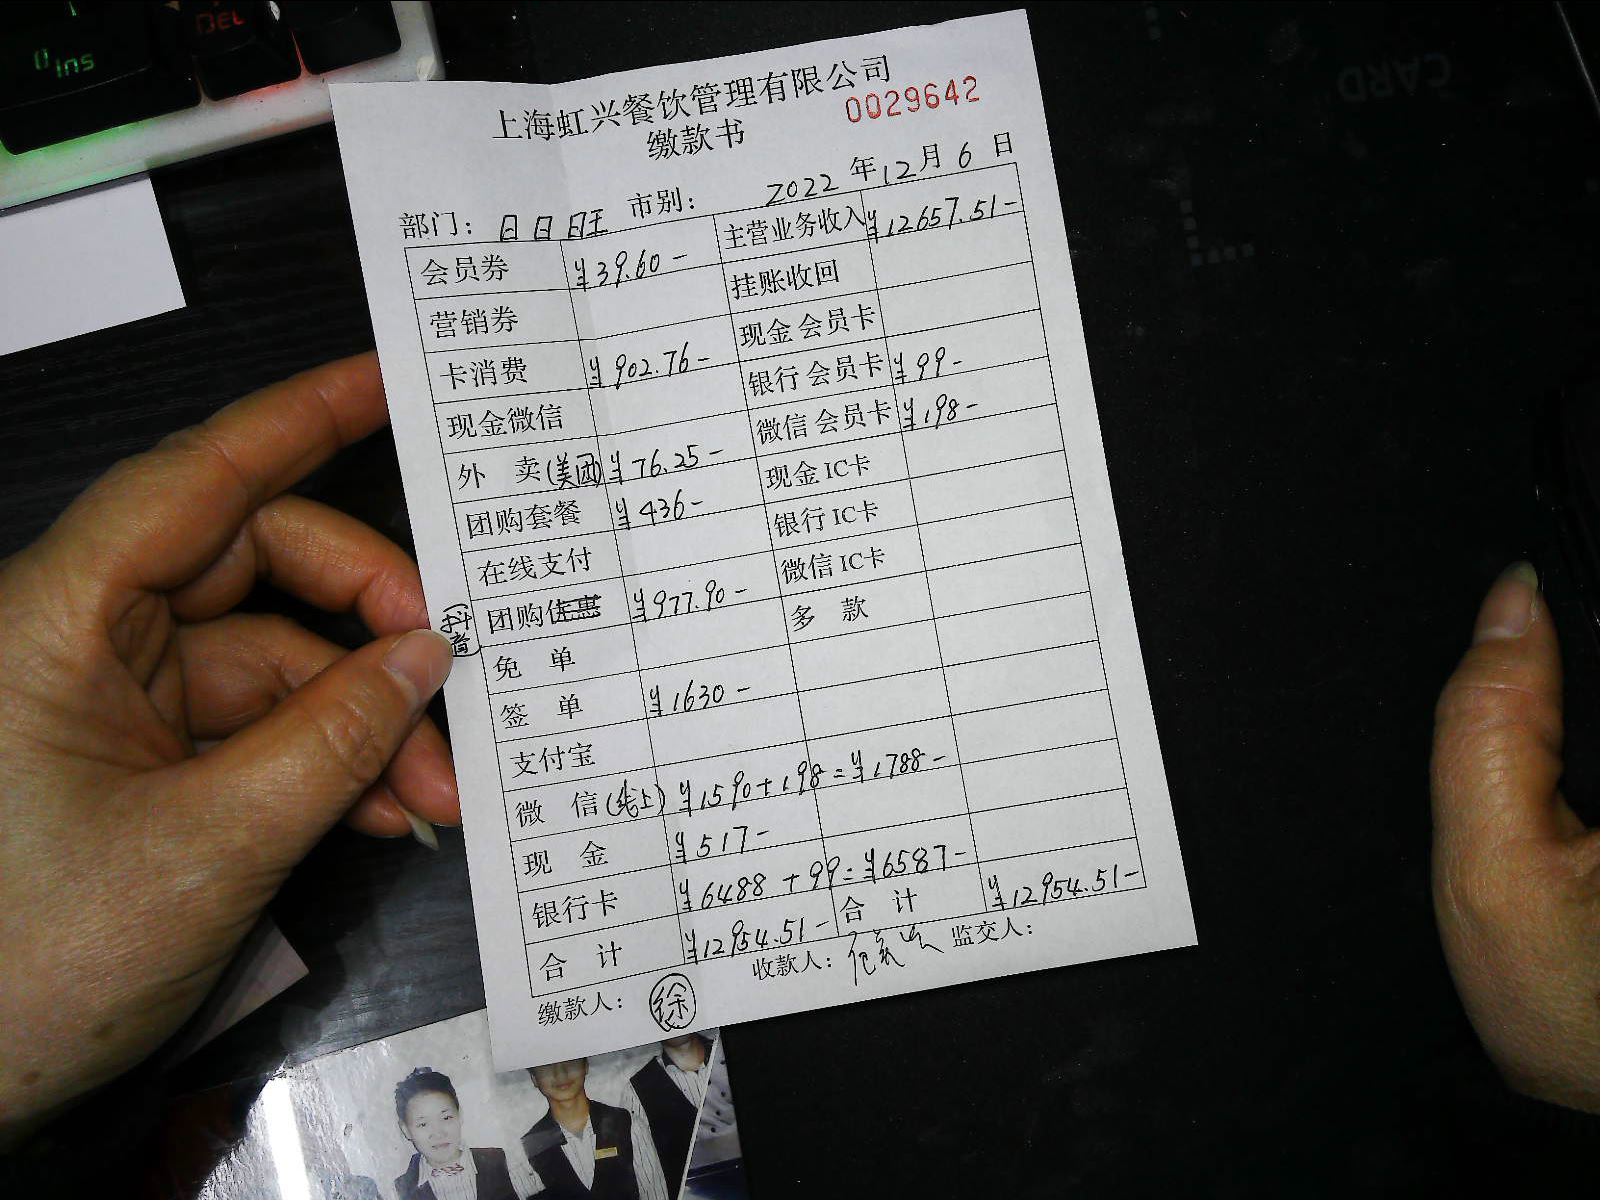 Ins
DEL
CARD
上海虹兴餐饮管理有限公司
0029642
缴款书
部门: 日日旺 市别: 2022 年 12 月 6 日
会员券 ¥39.60- 主营业务收入 ¥12657.51-
营销券 挂账收回
卡消费 ¥902.76- 现金会员卡
现金微信 银行会员卡 ¥99-
外 卖(美团) ¥76.25- 微信会员卡 ¥198-
团购套餐 ¥436- 现金IC卡
在线支付 银行IC卡
(抖音) 团购优惠 ¥977.90- 微信IC卡
免 单 多 款
签 单 ¥1630-
支付宝
微 信(线上) ¥1590+198=¥1788-
现 金 ¥517-
银行卡 ¥6488+99=¥6587-
合 计 ¥12954.51- 合 计 ¥12954.51-
缴款人: 徐 收款人: 监交人: